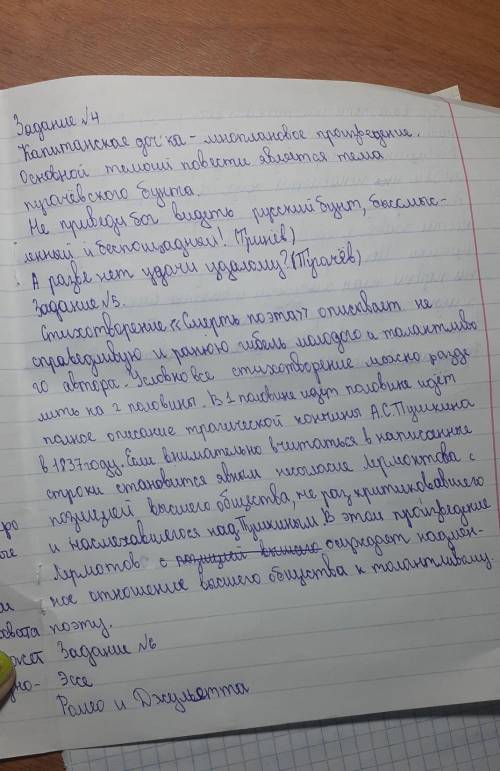 Задание №4
Капитанская дочка - многлановое произведение.
Основной темой повести является тема
пугачёвского бунта.
Не приведи бог видеть русский бунт, бессмыс-
ленный и беспощадный! (Гринёв)
А разве нет удачи удалому? (Пугачёв)
Задание №5.
Стихотворение «Смерть поэта» описквает не
справедливую и ранюю гибель молодого и талантливо
го автора. Условно все стихотворение можно разде
лить на 2 половины. В 1 половине идёт половине идёт
полное описание трагической кончины А.С.Пушкина
в 1837 году. Если внимательно вчитаться в написанные
строки становится явным несогласие Лермонтова с
позицией высшего общества, не раз критиковавшего
и насмехавшегося над Пушкиным. В этом произведение
Лермотов с позицией высшего осуждает надмен-
ное отношение высшего общества к талантливому
поэту.
Задание №6
Эссе
Ромео и Джульетта